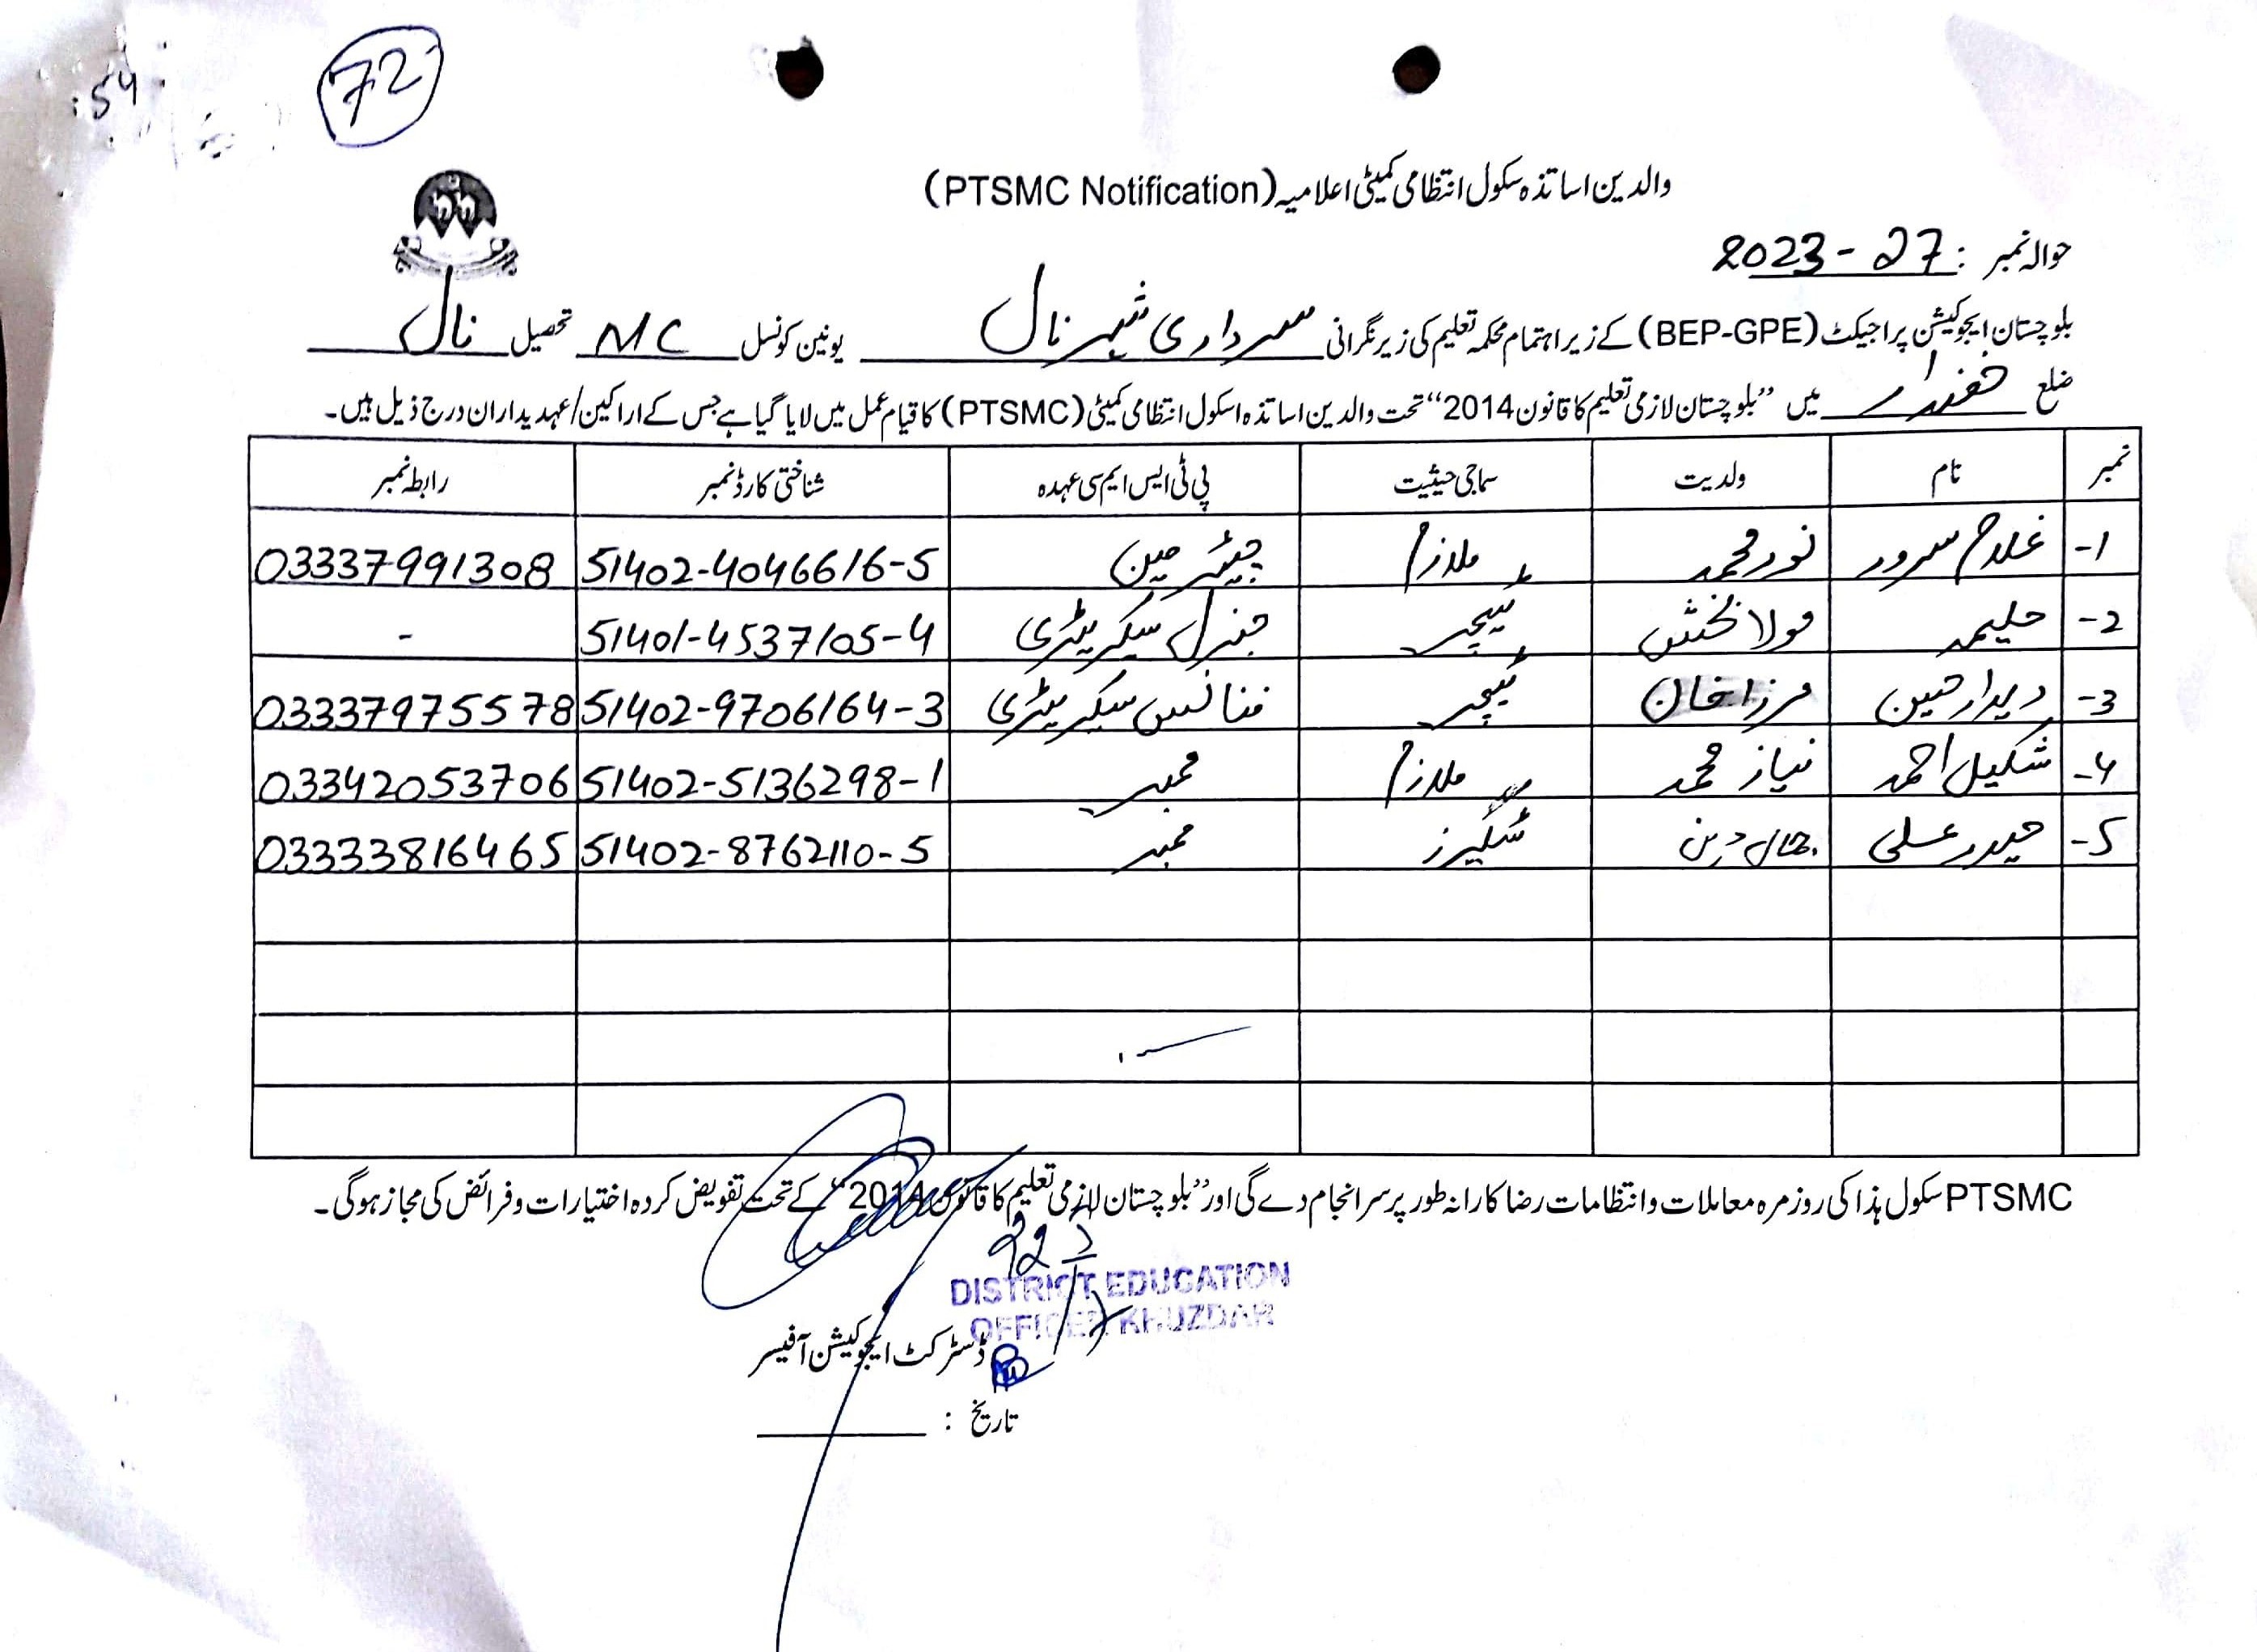 :54
72
والدین اساتذہ سکول انتظامی کمیٹی اعلامیہ (PTSMC Notification)
حوالہ نمبر : 2023-27
بلوچستان ایجوکیشن پراجیکٹ (BEP-GPE) کے زیر اہتمام محکمہ تعلیم کی زیر نگرانی سرداری شہر نال یونین کونسل MC تحصیل نال
ضلع خضدار میں ”بلوچستان لازمی تعلیم کا قانون 2014“ تحت والدین اساتذہ اسکول انتظامی کمیٹی (PTSMC) کا قیام عمل میں لایا گیا ہے جس کے اراکین/عہدیداران درج ذیل ہیں۔
نمبر نام ولدیت سماجی حیثیت پی ٹی ایس ایم سی عہدہ شناختی کارڈ نمبر رابطہ نمبر
1- غلام سرور نور محمد ملازم چیئرمین 51402-4046616-5 03337991308
2- حلیمہ مولا بخش ٹیچر جنرل سیکریٹری 51401-4537105-4 -
3- دیدار حسین مرزا خان ٹیچر فنانس سیکریٹری 51402-9706164-3 03337975578
4- شکیل احمد نیاز محمد ملازم ممبر 51402-5136298-1 03342053706
5- حیدر علی ممبر 51402-8762110-5 03333816465
PTSMC سکول ہذا کی روزمرہ معاملات و انتظامات رضاکارانہ طور پر سرانجام دے گی اور ”بلوچستان لازمی تعلیم کا قانون 2014“ کے تحت تفویض کردہ اختیارات و فرائض کی مجاز ہوگی۔
DISTRICT EDUCATION
OFFICER KHUZDAR
ڈسٹرکٹ ایجوکیشن آفیسر
تاریخ :